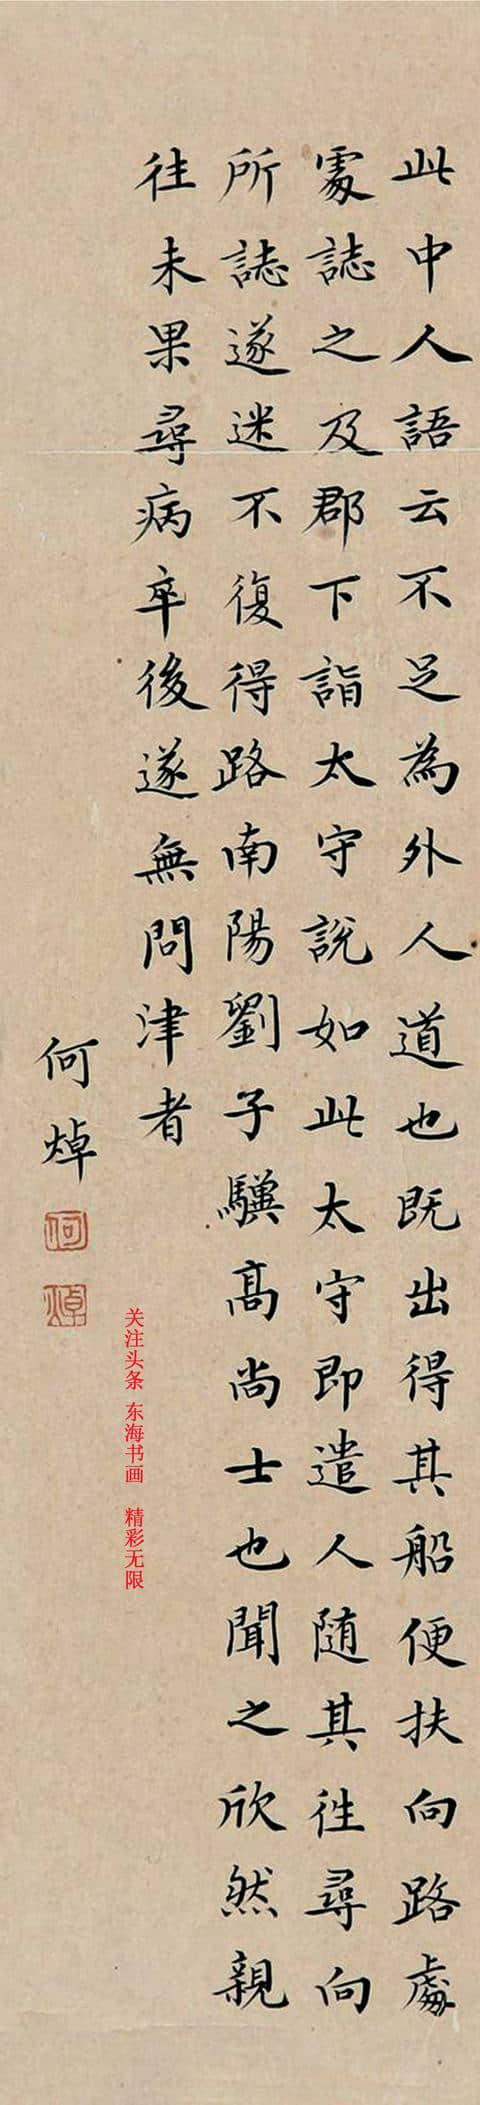 此中人語云不足為外人道也既出得其船便扶向路處
處誌之及郡下詣太守說如此太守即遣人随其往尋向
所誌遂迷不復得路南陽劉子驥髙尚士也聞之欣然親
往未果尋病卒後遂無問津者
何焯
何
焯
关注头条 东海书画 精彩无限